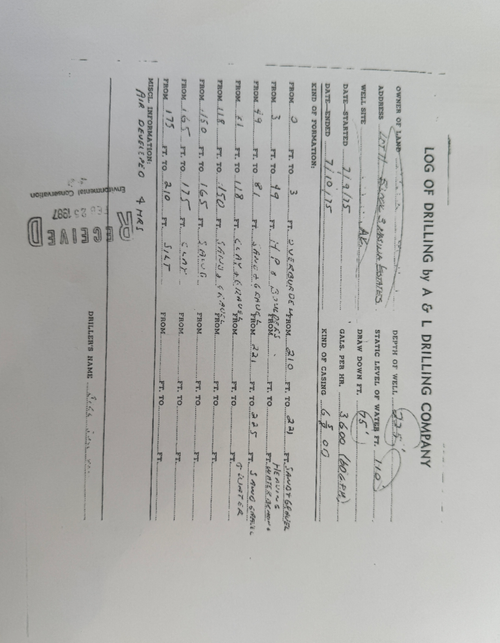 LOG OF DRILLING by A & L DRILLING COMPANY
OWNER OF LAND DEPTH OF WELL 225'
ADDRESS LOT 4 ESTATES STATIC LEVEL OF WATER FT. 110'
WELL SITE DRAW DOWN FT. 75'
DATE STARTED 7/9/75 GALS. PER HR. 3600 (60 GPM)
DATE ENDED 7/10/75 KIND OF CASING 6 5/8 OD
KIND OF FORMATION:
FROM 0 FT. TO 3 FT. OVERBURDEN FROM 210 FT. TO 221 FT. SAND & GRAVEL
HEAVING
FROM 3 FT. TO 49 FT. H.P. & BOULDERS FROM FT. TO FT. WATER
FROM 49 FT. TO 81 FT. SAND & GRAVEL FROM 221 FT. TO 225 FT. SAND GRAVEL
& WATER
FROM 81 FT. TO 118 FT. CLAY & GRAVEL FROM FT. TO FT.
FROM 118 FT. TO 150 FT. SAND & GRAVEL FROM FT. TO FT.
FROM 150 FT. TO 165 FT. SAND FROM FT. TO FT.
FROM 165 FT. TO 175 FT. CLAY FROM FT. TO FT.
FROM 175 FT. TO 210 FT. SILT FROM FT. TO FT.
MISCL. INFORMATION:
AIR DEVELOPED 4 HRS
RECEIVED
FEB 23 1987
Environmental Conservation
DRILLER'S NAME